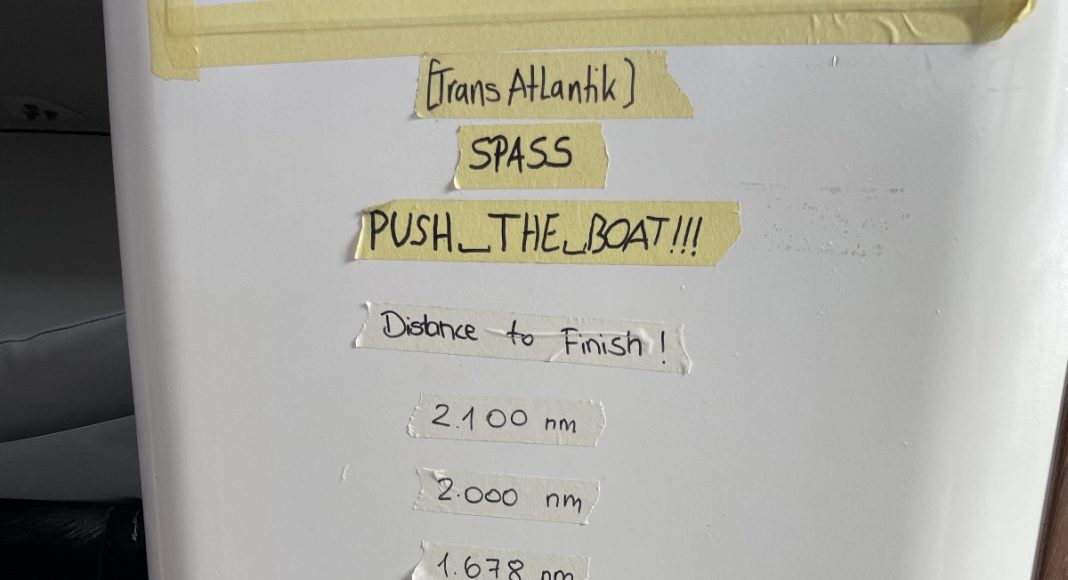 [Trans Atlantik]
SPASS
PUSH_THE_BOAT!!!
Distance to Finish!
2.100 nm
2.000 nm
1.678 nm